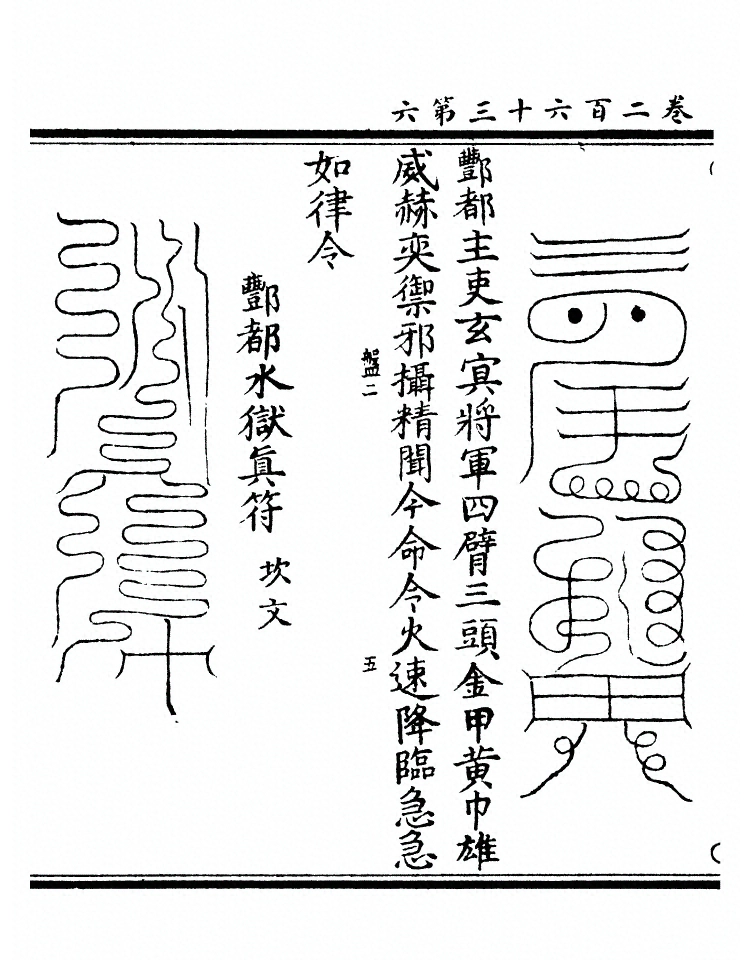 卷二百六十三第六
酆都主吏玄㝠將軍四臂三頭金甲黃巾雄
威赫奕禦邪攝精聞今命令火速降臨急急
盤二
五
如律令
酆都水獄眞符 坎文